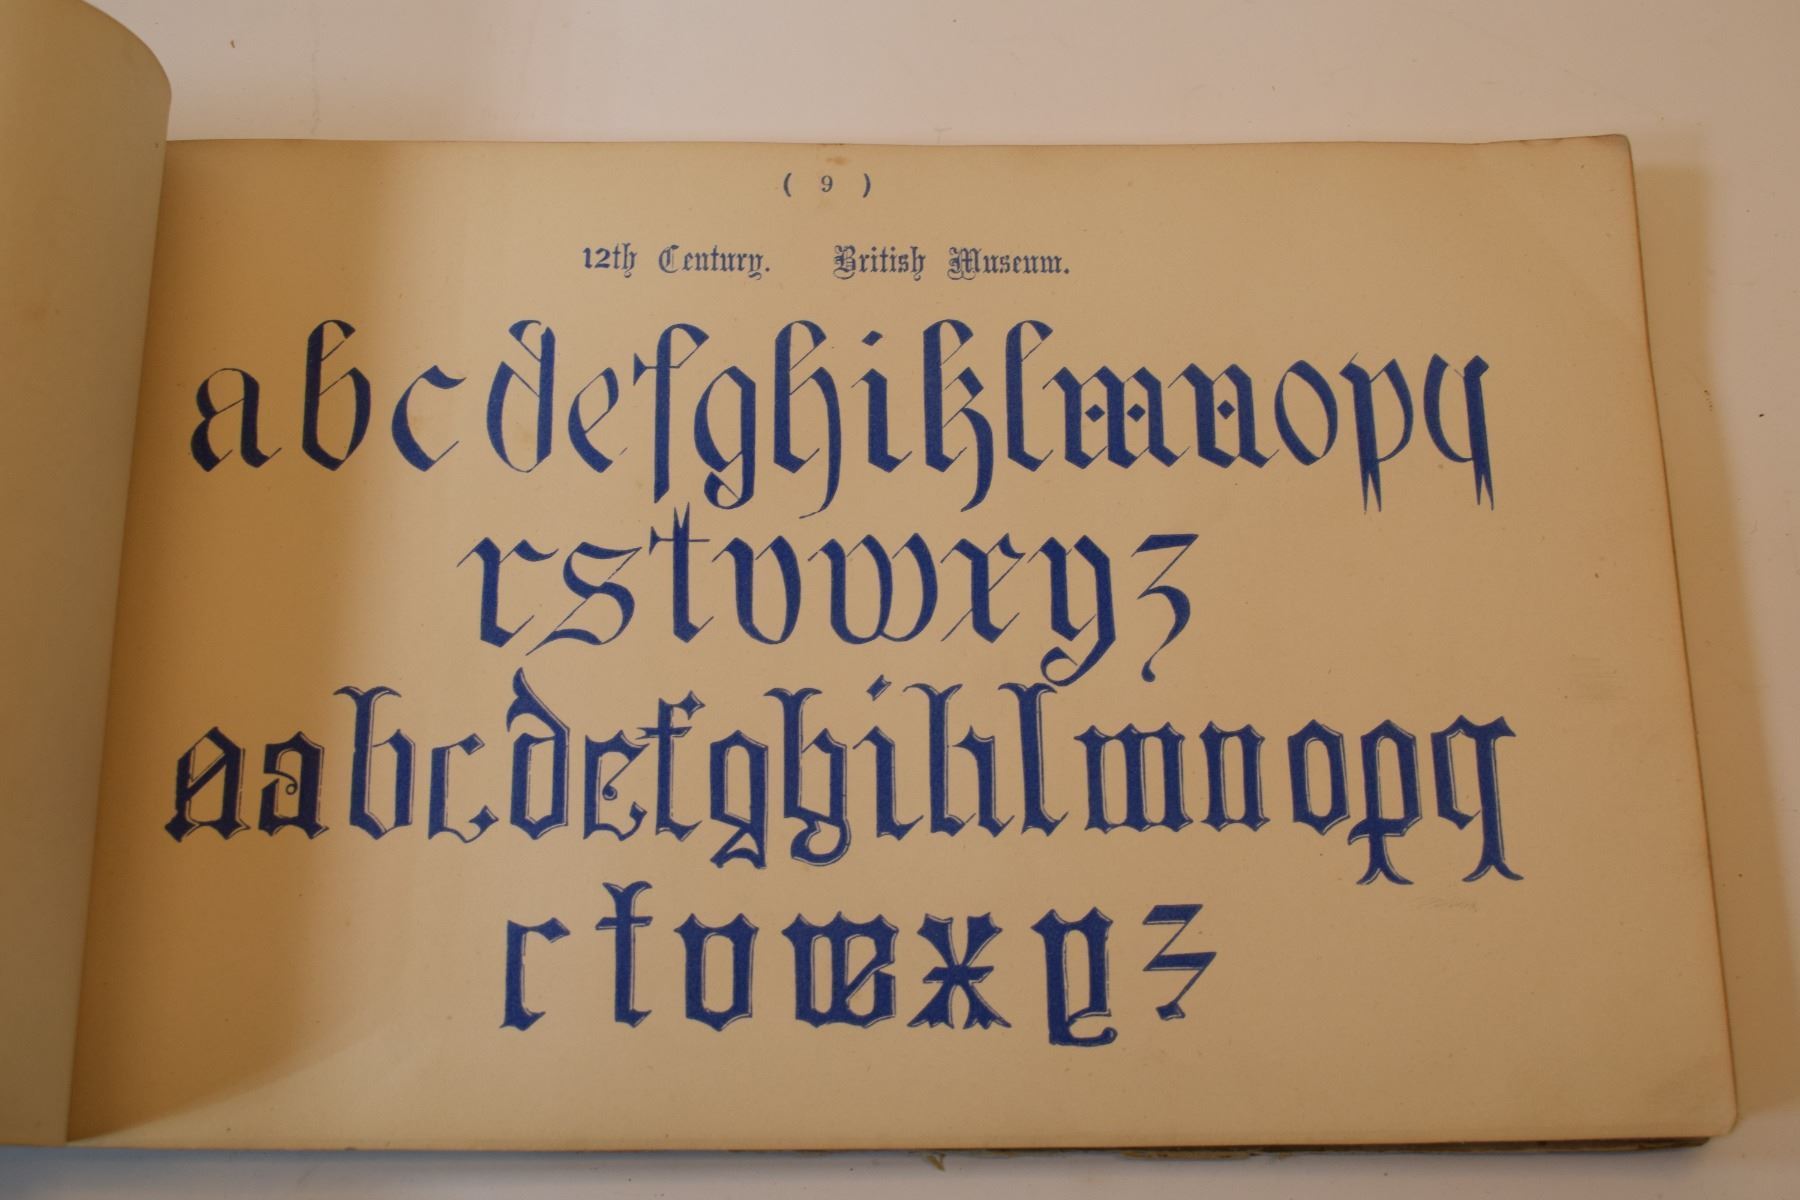 ( 9 )
12th Century. British Museum.
abcdefghiklmnopq
rstvwxyz
aabcdefghiklmnopq
rtvwxyz